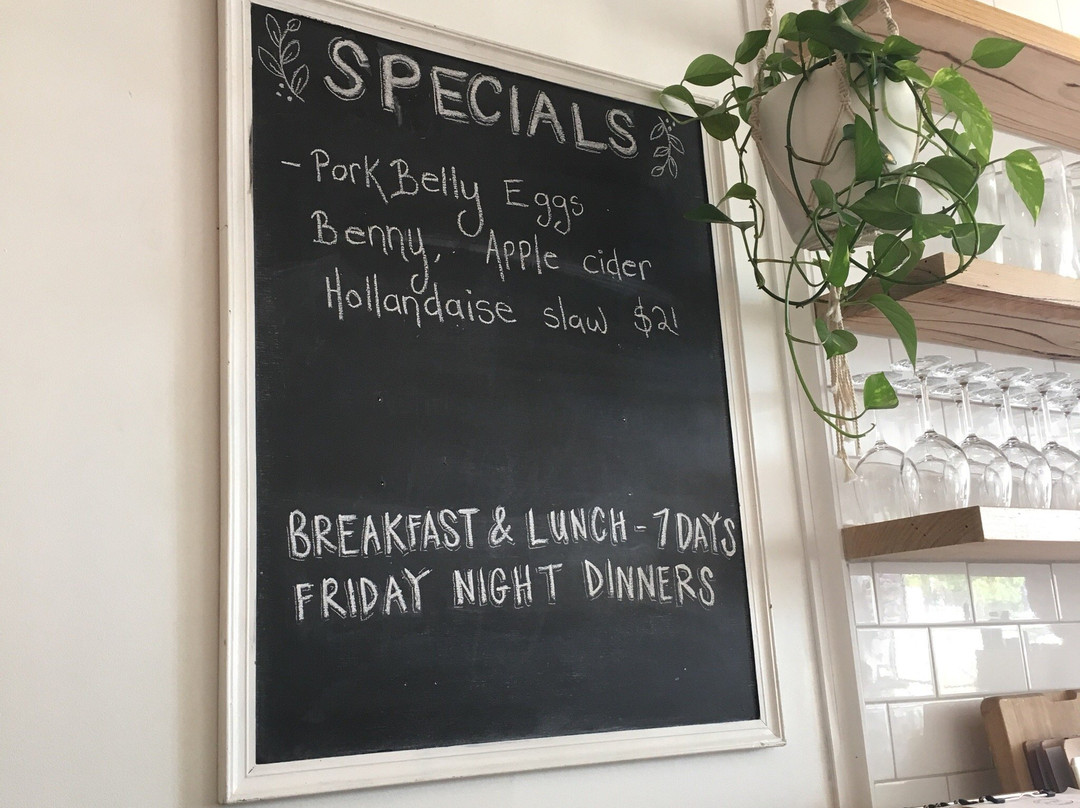 SPECIALS
- Pork Belly Eggs
Benny, Apple cider
Hollandaise slaw $21
BREAKFAST & LUNCH - 7 DAYS
FRIDAY NIGHT DINNERS